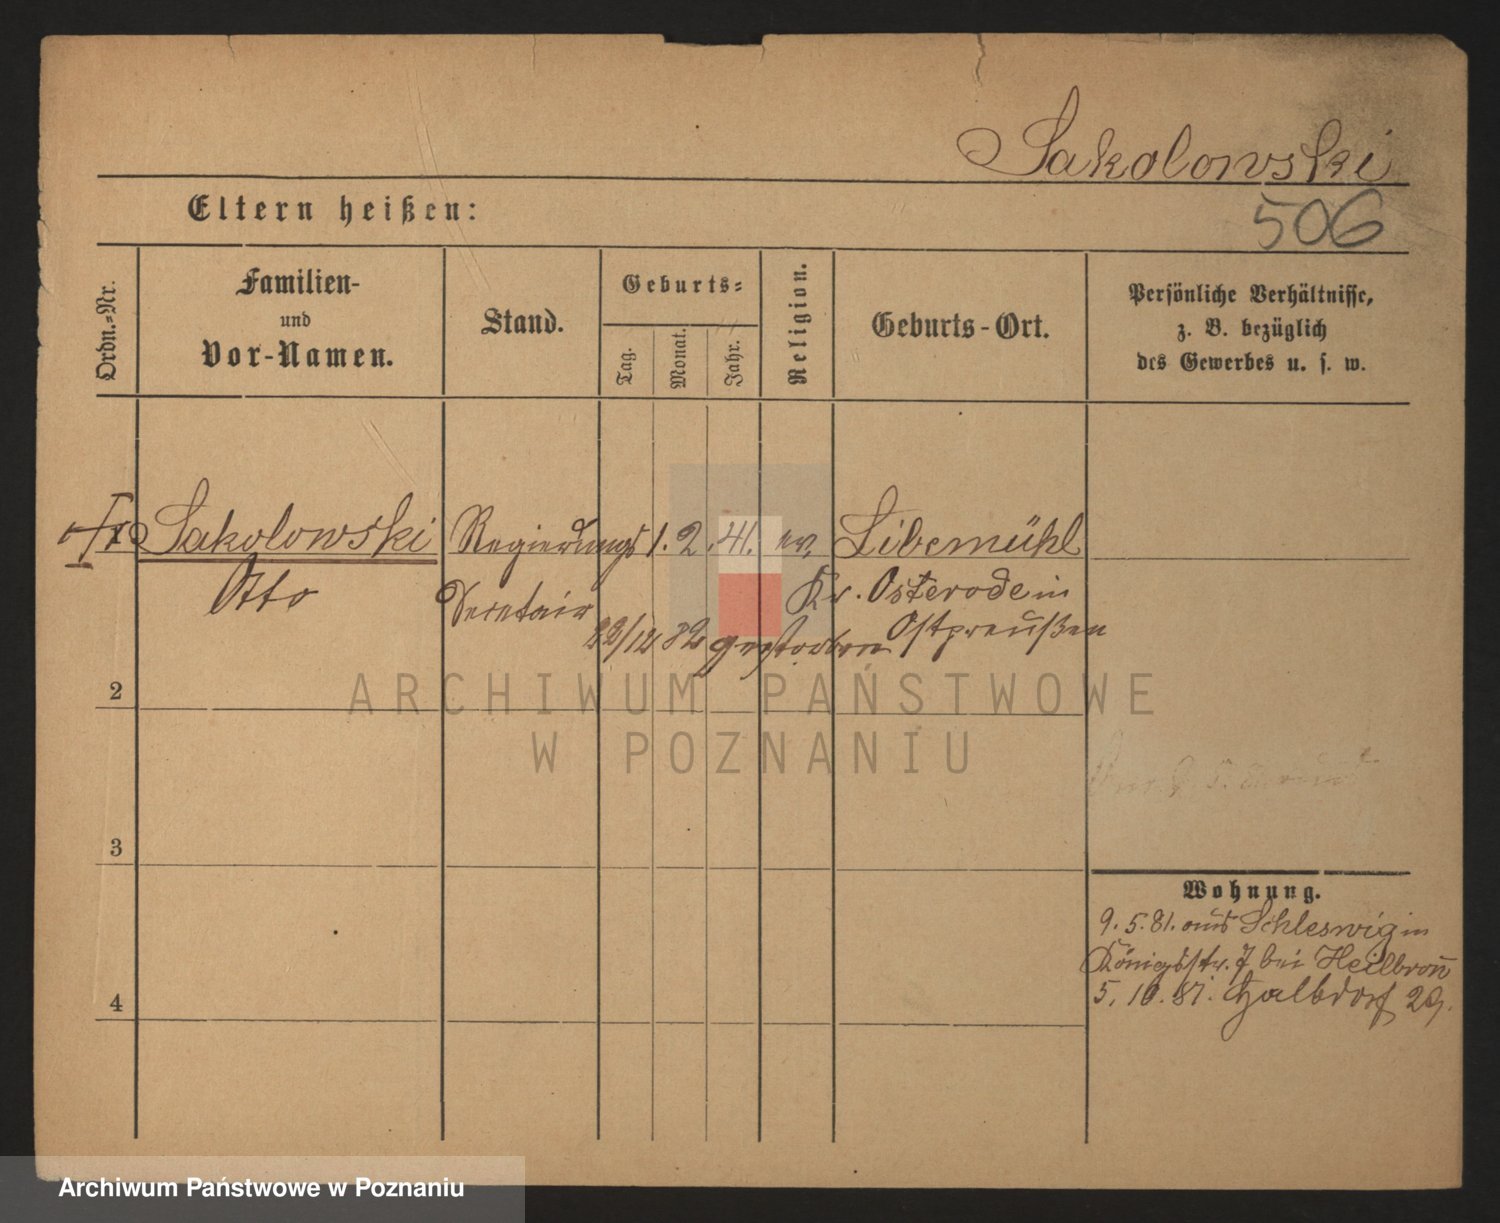 Sakolowski
Eltern heißen:
506
Ordn.=Nr.
Familien-
und
Vor-Namen.
Stand.
Geburts=
Tag.
Monat.
Jahr.
Religion.
Geburts-Ort.
Persönliche Verhältnisse,
z. B. bezüglich
des Gewerbes u. s. w.
Sakolowski
Otto
Regierungs
Secretair
1. 2. 41.
ev.
Libemühl
Kr. Osterode in
Ostpreußen
22/12 82 gestorben
2
3
4
Wohnung.
9. 5. 81. aus Schleswig in
Königsstr. 7 bei Heilbron̄
5. 10. 81. Halbdorf 29.
ARCHIWUM PAŃSTWOWE
W POZNANIU
Archiwum Państwowe w Poznaniu